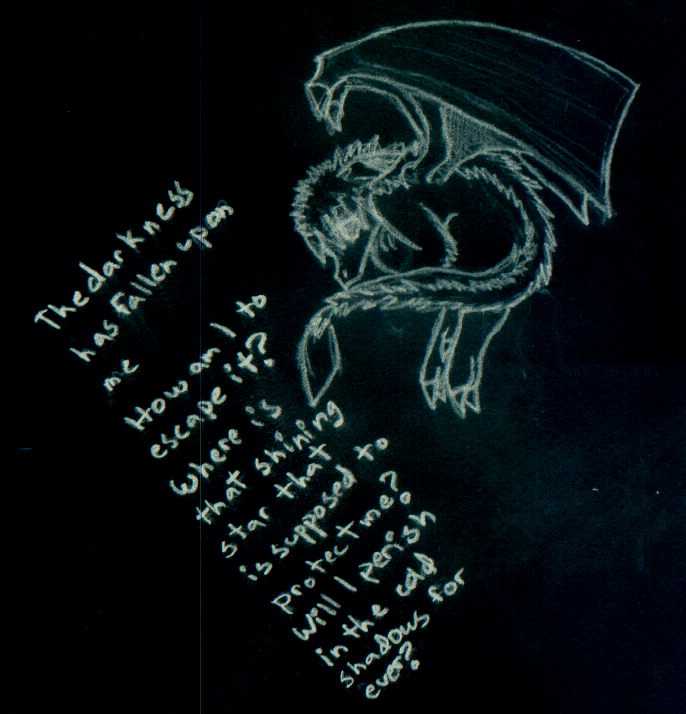 The darkness
has fallen upon
me
How am I to
escape it?
Where is
that shining
star that
is supposed to
protect me?
Will I perish
in the cold
shadows for
ever?